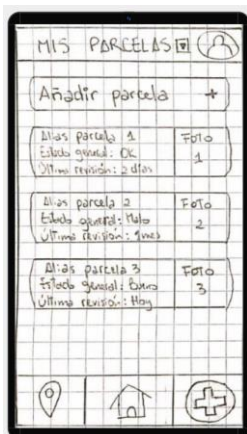 MIS PARCELAS
Añadir parcela +
Alias parcela 1
Estado general: OK
Última revisión: 2 días
FOTO
1
Alias parcela 2
Estado general: Malo
Última revisión: 1 mes
FOTO
2
Alias parcela 3
Estado general: Bueno
Última revisión: Hoy
FOTO
3